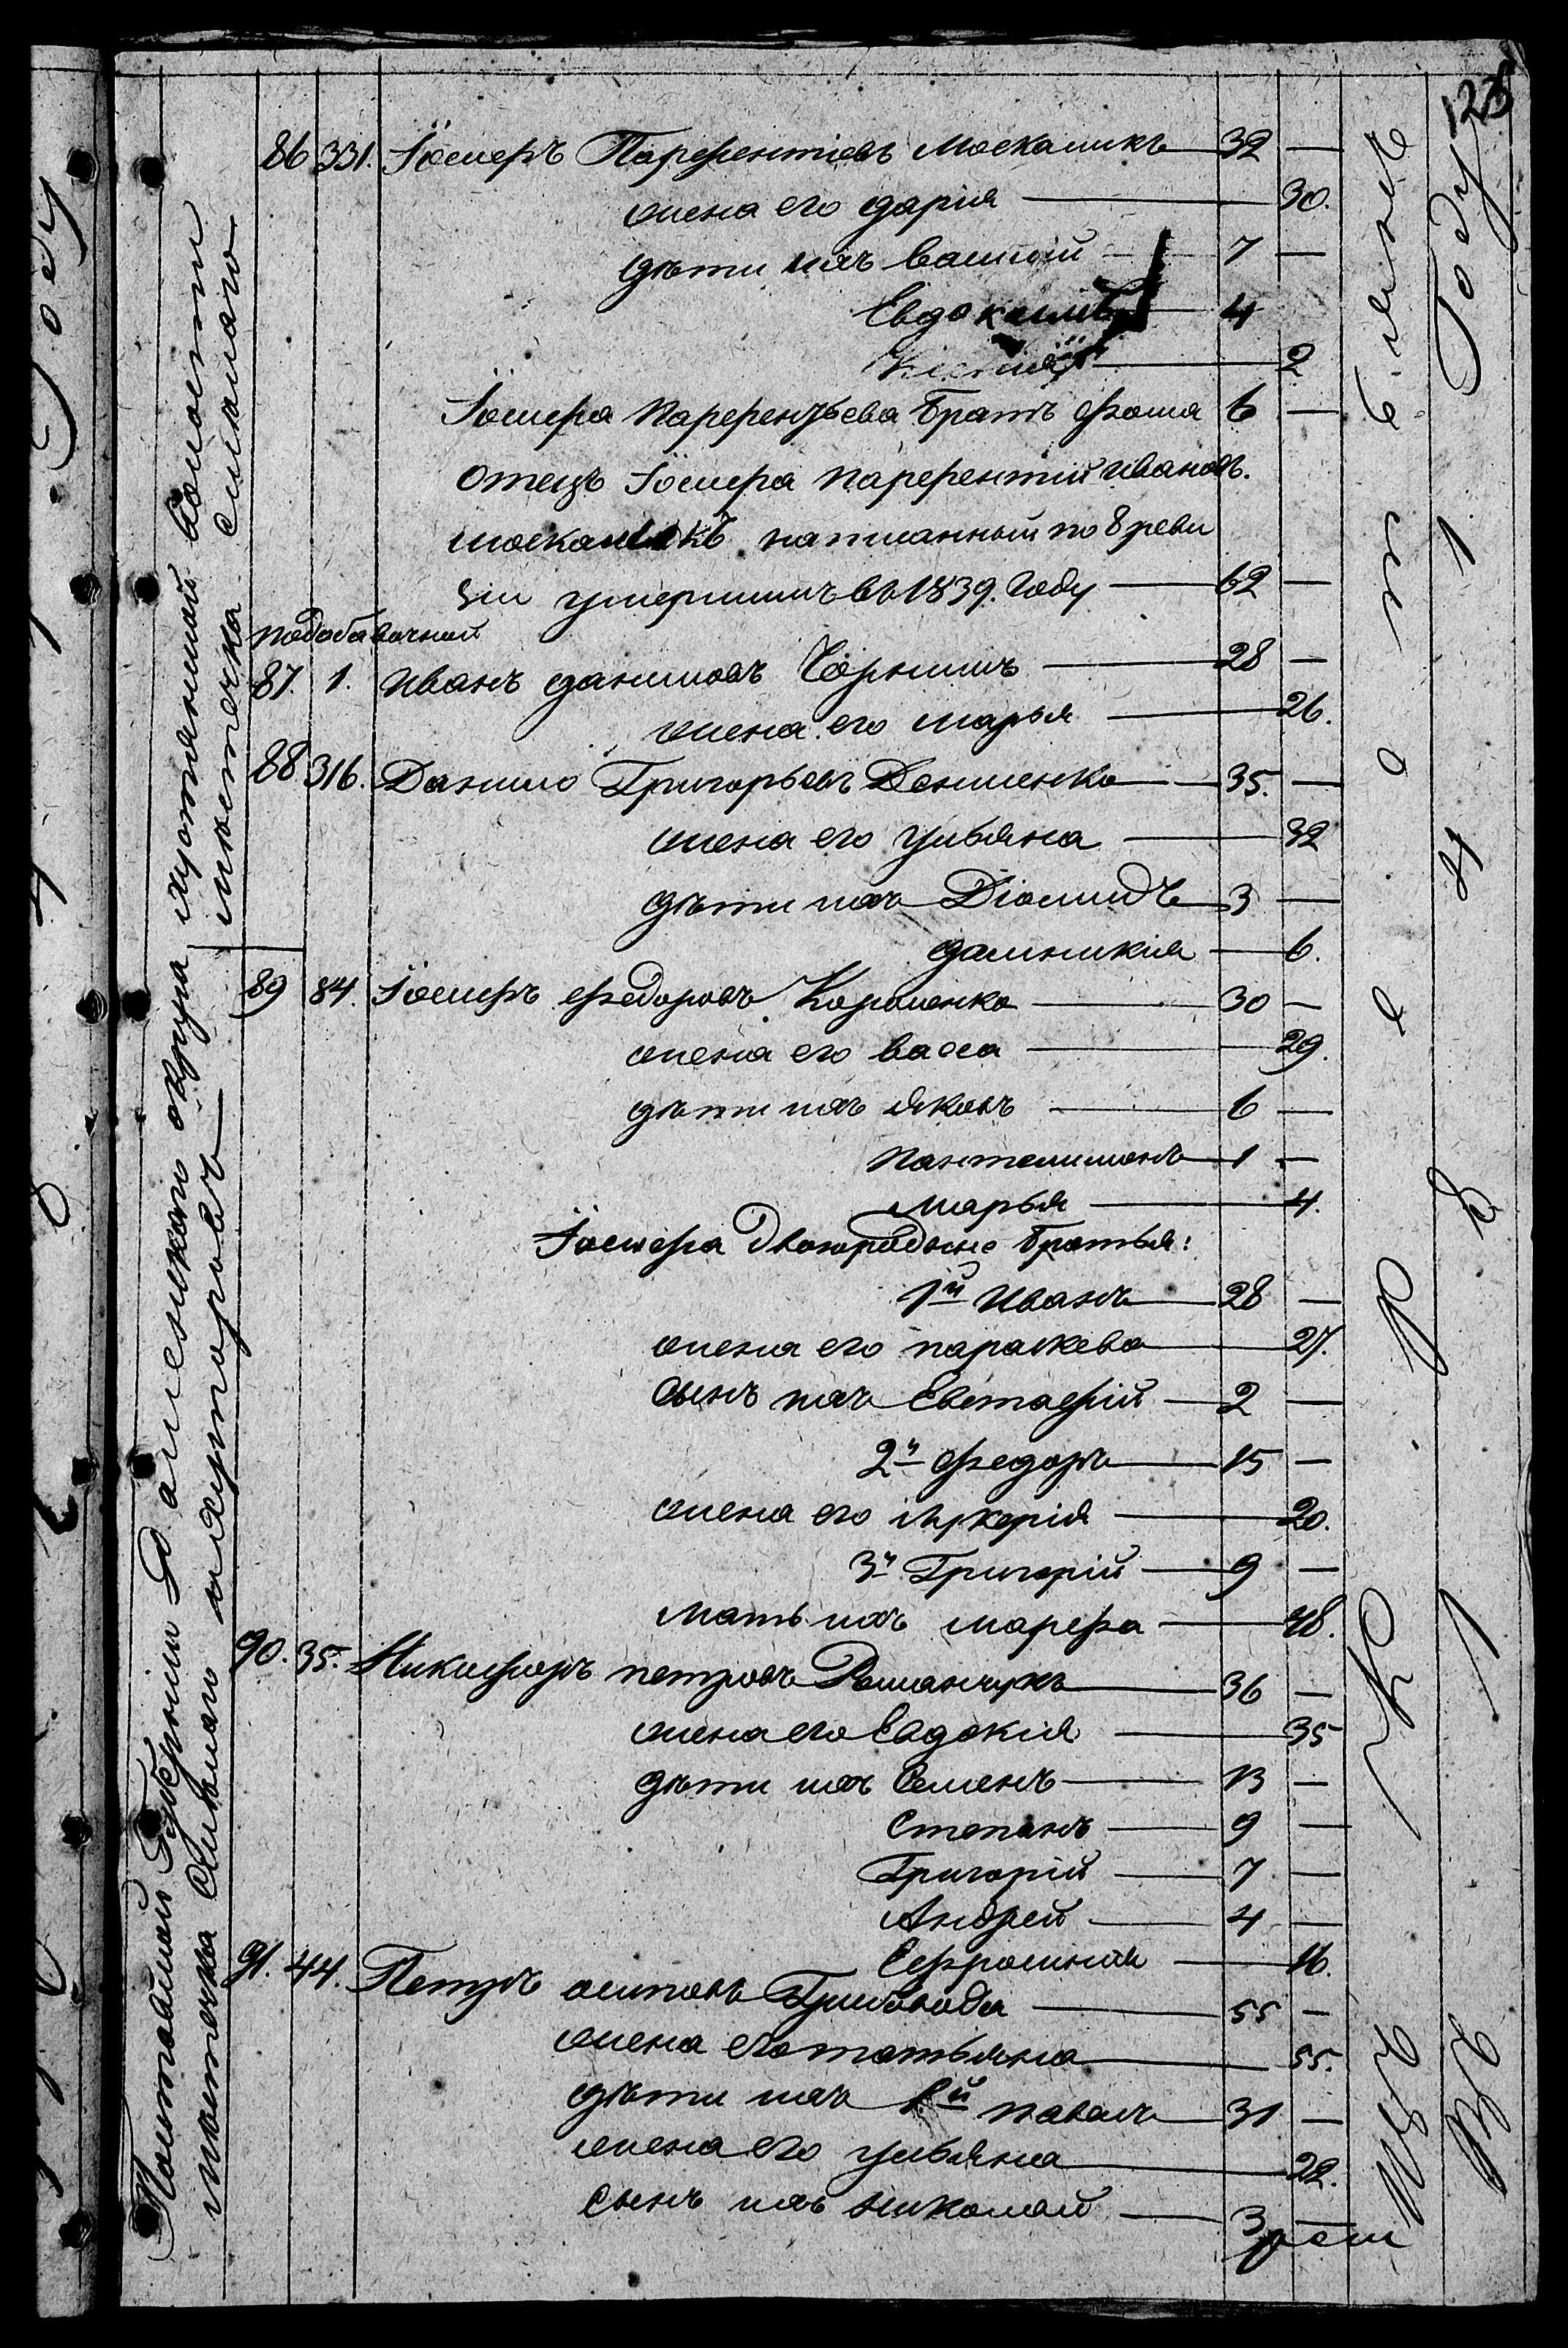 125
86 331. Іосифъ Парфентіевъ Москаликъ — 32 —
жена его дарія — 30.
дѣти ихъ василій — 7 —
Евдокимъ — 4
2
Іосифа парфентьева братъ фома 6 —
отецъ Іосифа парфентий ивановъ.
москаликъ написанный по 8 реви
зіи умершимъ въ 1839. году — 62 —
подобавочной
87. 1. иванъ даниловъ Чорнишъ — 28 —
жена его марья — 26.
88 316. Данило Григорьевъ Денисенко — 35. —
жена его ульяна — 32
дѣти ихъ Діомидъ — 3 —
домникія — 6.
89 84. Іосифъ федоровъ Короленко — 30 —
жена его васса — 29.
дѣти ихъ яковъ — 6 —
пантелимонъ — 1 —
марья — 4.
Іосифа двоюродные братья:
1й иванъ — 28 —
жена его параскева — 27.
сынъ ихъ Евстафій — 2 —
2й федоръ — 15 —
жена его лукерія — 20.
3й Григорій — 9 —
мать ихъ марфа — 48.
90. 35. Никифоръ петровъ Романчукъ — 36 —
жена его Евдокія — 35
дѣти ихъ Семенъ — 13 —
Степанъ — 9 —
Григорій — 7 —
Андрей — 4 —
Ефросинія — 16.
91. 44. Петръ осиповъ — 55 —
жена его татьяна — 55.
дѣти ихъ 1й павелъ — 31 —
жена его ульяна — 22.
сынъ ихъ николай — 3 —
Полтавской Губерніи Роменскаго округа волости
мѣстечка Смѣлаго
мѣстечка Смѣлаго
Году